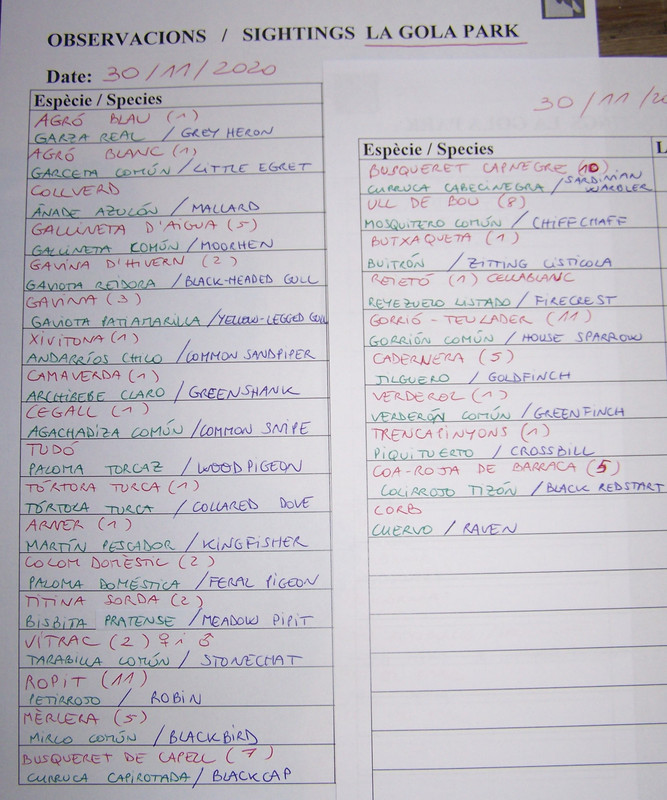 OBSERVACIONS / SIGHTINGS LA GOLA PARK
Date: 30/11/2020
Espècie / Species
AGRÓ BLAU (1)
GARZA REAL / GREY HERON
AGRÓ BLANC (1)
GARCETA COMÚN / LITTLE EGRET
COLLVERD
ÁNADE AZULÓN / MALLARD
GALLINETA D'AIGUA (5)
GALLINETA COMÚN / MOORHEN
GAVINA D'HIVERN (2)
GAVIOTA REIDORA / BLACK-HEADED GULL
GAVINA (3)
GAVIOTA PATIAMARILLA / YELLOW-LEGGED GULL
XIVITONA (1)
ANDARRÍOS CHICO / COMMON SANDPIPER
CAMAVERDA (1)
ARCHIBEBE CLARO / GREENSHANK
CEGALL (1)
AGACHADIZA COMÚN / COMMON SNIPE
TUDÓ
PALOMA TORCAZ / WOODPIGEON
TÓRTORA TURCA (1)
TÓRTOLA TURCA / COLLARED DOVE
ARNER (1)
MARTÍN PESCADOR / KINGFISHER
COLOM DOMÈSTIC (2)
PALOMA DOMÉSTICA / FERAL PIGEON
TITINA SORDA (2)
BISBITA PRATENSE / MEADOW PIPIT
VITRAC (2) ♀ i ♂
TARABILLA COMÚN / STONECHAT
ROPIT (11)
PETIRROJO / ROBIN
MÈRLERA (5)
MIRLO COMÚN / BLACKBIRD
BUSQUERET DE CAPELL (7)
CURRUCA CAPIROTADA / BLACKCAP
30/11/20
Espècie / Species
L
BUSQUERET CAPNEGRE (10)
CURRUCA CABECINEGRA / SARDINIAN WARBLER
ULL DE BOU (8)
MOSQUITERO COMÚN / CHIFFCHAFF
BUTXAQUETA (1)
BUITRÓN / ZITTING CISTICOLA
REIETÓ (1) CELLABLANC
REYEZUELO LISTADO / FIRECREST
GORRIÓ-TEULADER (11)
GORRIÓN COMÚN / HOUSE SPARROW
CADERNERA (5)
JILGUERO / GOLDFINCH
VERDEROL (1)
VERDERÓN COMÚN / GREENFINCH
TRENCAPINYONS (1)
PIQUITUERTO / CROSSBILL
COA-ROJA DE BARRACA (5)
COLIRROJO TIZÓN / BLACK REDSTART
CORB
CUERVO / RAVEN